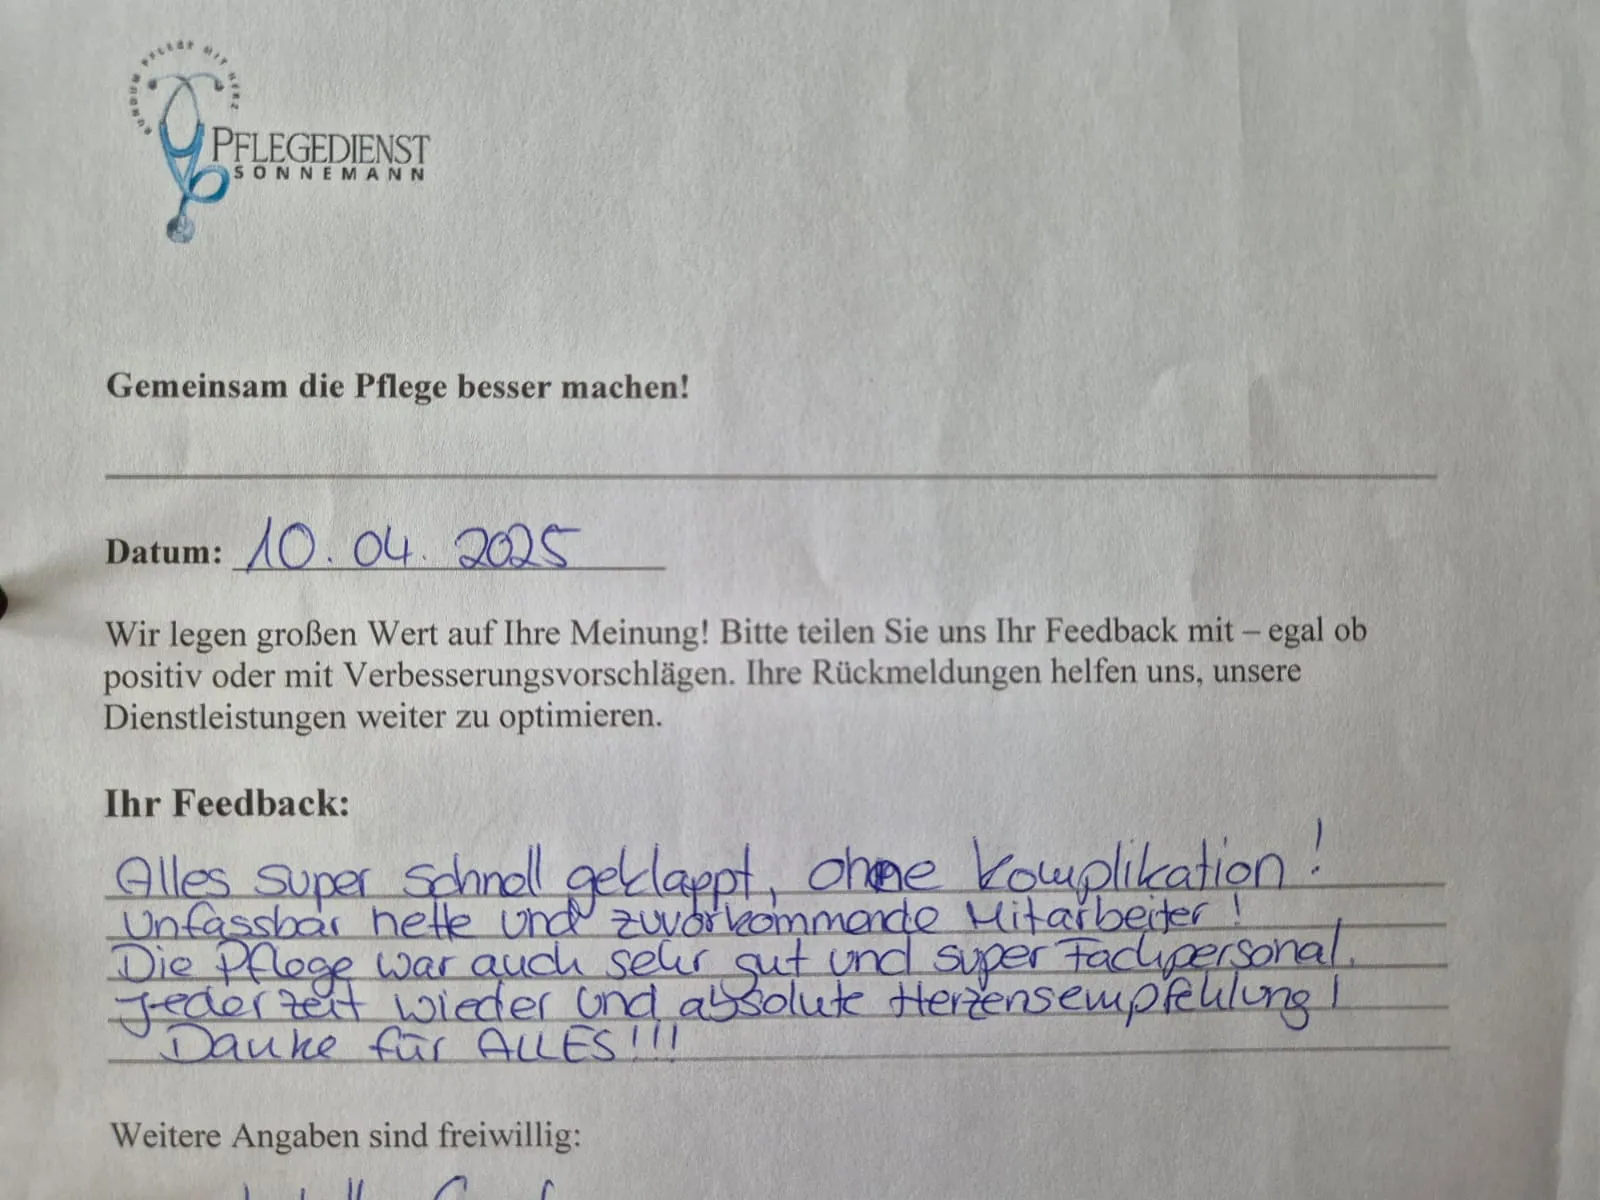 RUNDUM PFLEGE MIT HERZ
PFLEGEDIENST
SONNEMANN
Gemeinsam die Pflege besser machen!
Datum: 10.04.2025
Wir legen großen Wert auf Ihre Meinung! Bitte teilen Sie uns Ihr Feedback mit – egal ob
positiv oder mit Verbesserungsvorschlägen. Ihre Rückmeldungen helfen uns, unsere
Dienstleistungen weiter zu optimieren.
Ihr Feedback:
Alles super schnell geklappt, ohne Komplikation!
Unfassbar nette und zuvorkommende Mitarbeiter!
Die Pflege war auch sehr gut und super Fachpersonal.
Jederzeit wieder und absolute Herzensempfehlung!
Danke für ALLES!!!
Weitere Angaben sind freiwillig: